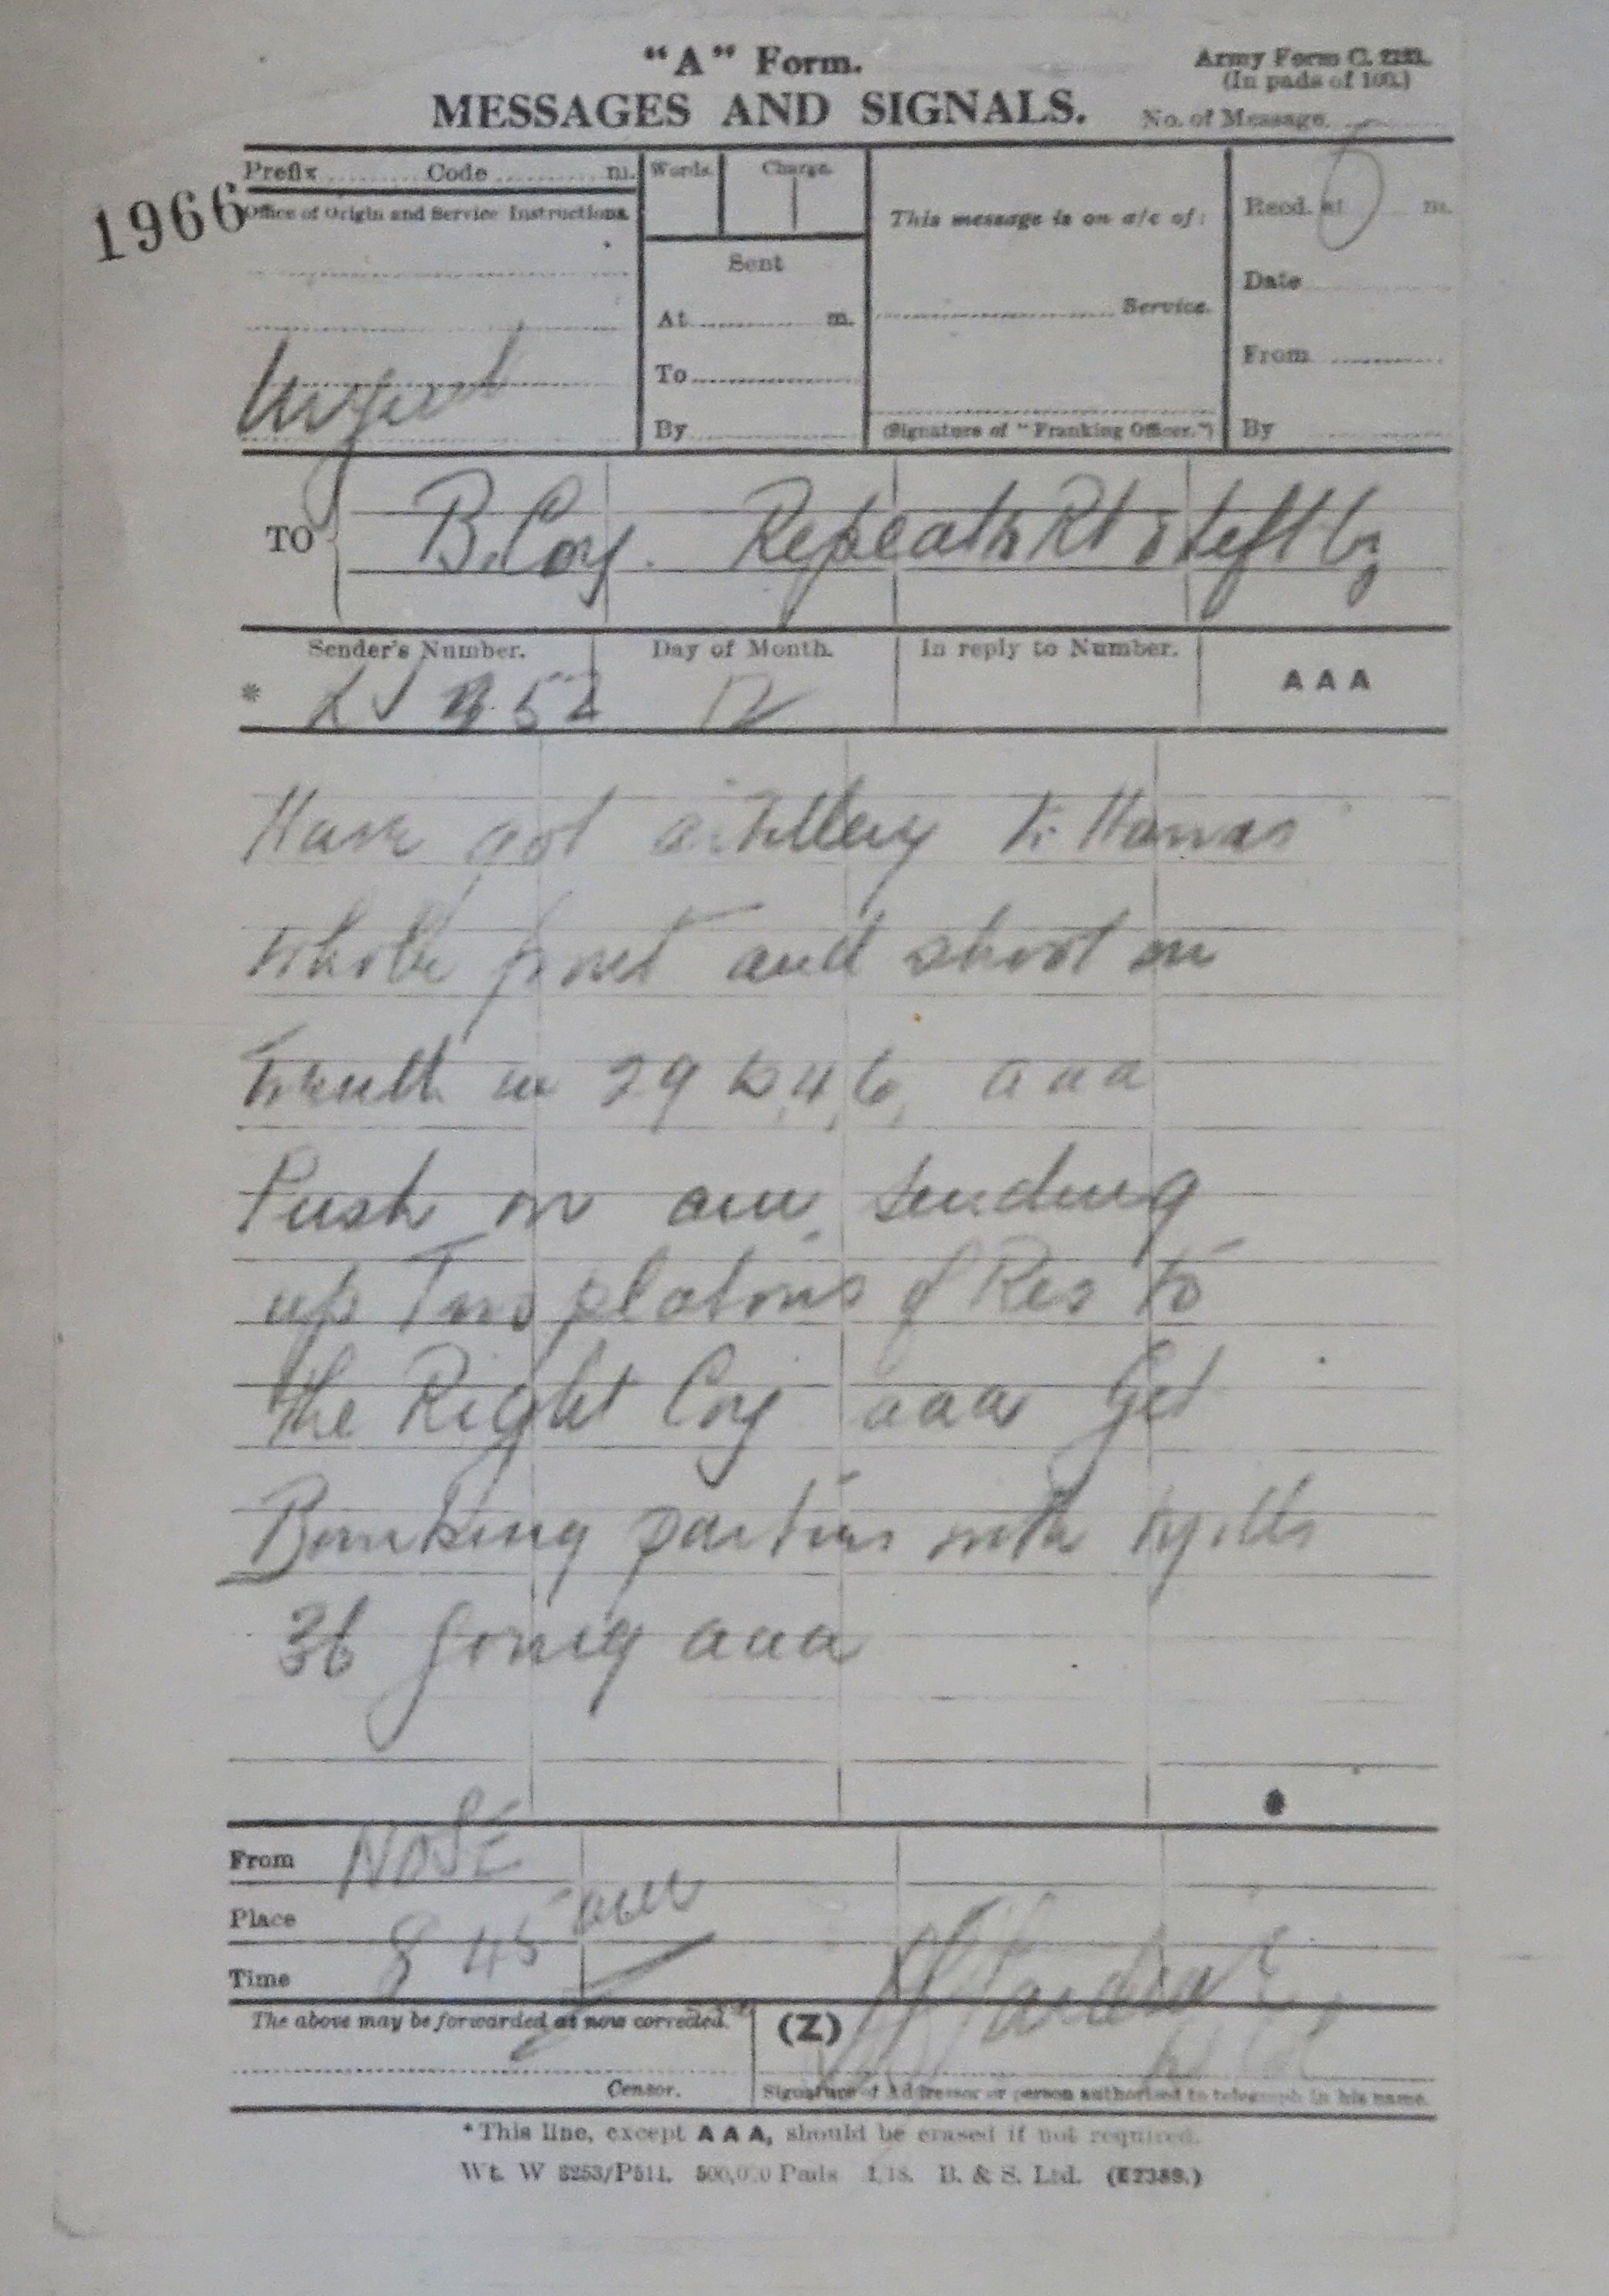 "A" Form.
Army Form C. 2121.
(In pads of 100.)
MESSAGES AND SIGNALS.
No. of Message
1966
Prefix Code m.
Words. Charge.
Office of Origin and Service Instructions.
This message is on a/c of:
Recd. at m.
Sent
Date
At m.
Service.
From
Urgent
To
By
(Signature of "Franking Officer.")
By
TO B. Coy. Repeat to Rt & Left Coy
Sender's Number. Day of Month. In reply to Number. AAA
* 52 12
Have got artillery to Harras
whole front and shoot on
trench in 29 b, 4, 6, aaa
Push on am sending
up Two platoons of Res to
the Right Coy aaa Get
Bombing parties with Mills
36 going aaa
From NOSE
Place
Time 8 45 am
The above may be forwarded as now corrected. (Z)
Censor. Signature of Addressor or person authorised to telegraph in his name.
* This line, except AAA, should be erased if not required.
Wt. W 3253/P511. 500,000 Pads 1/18. B. & S. Ltd. (E2389.)